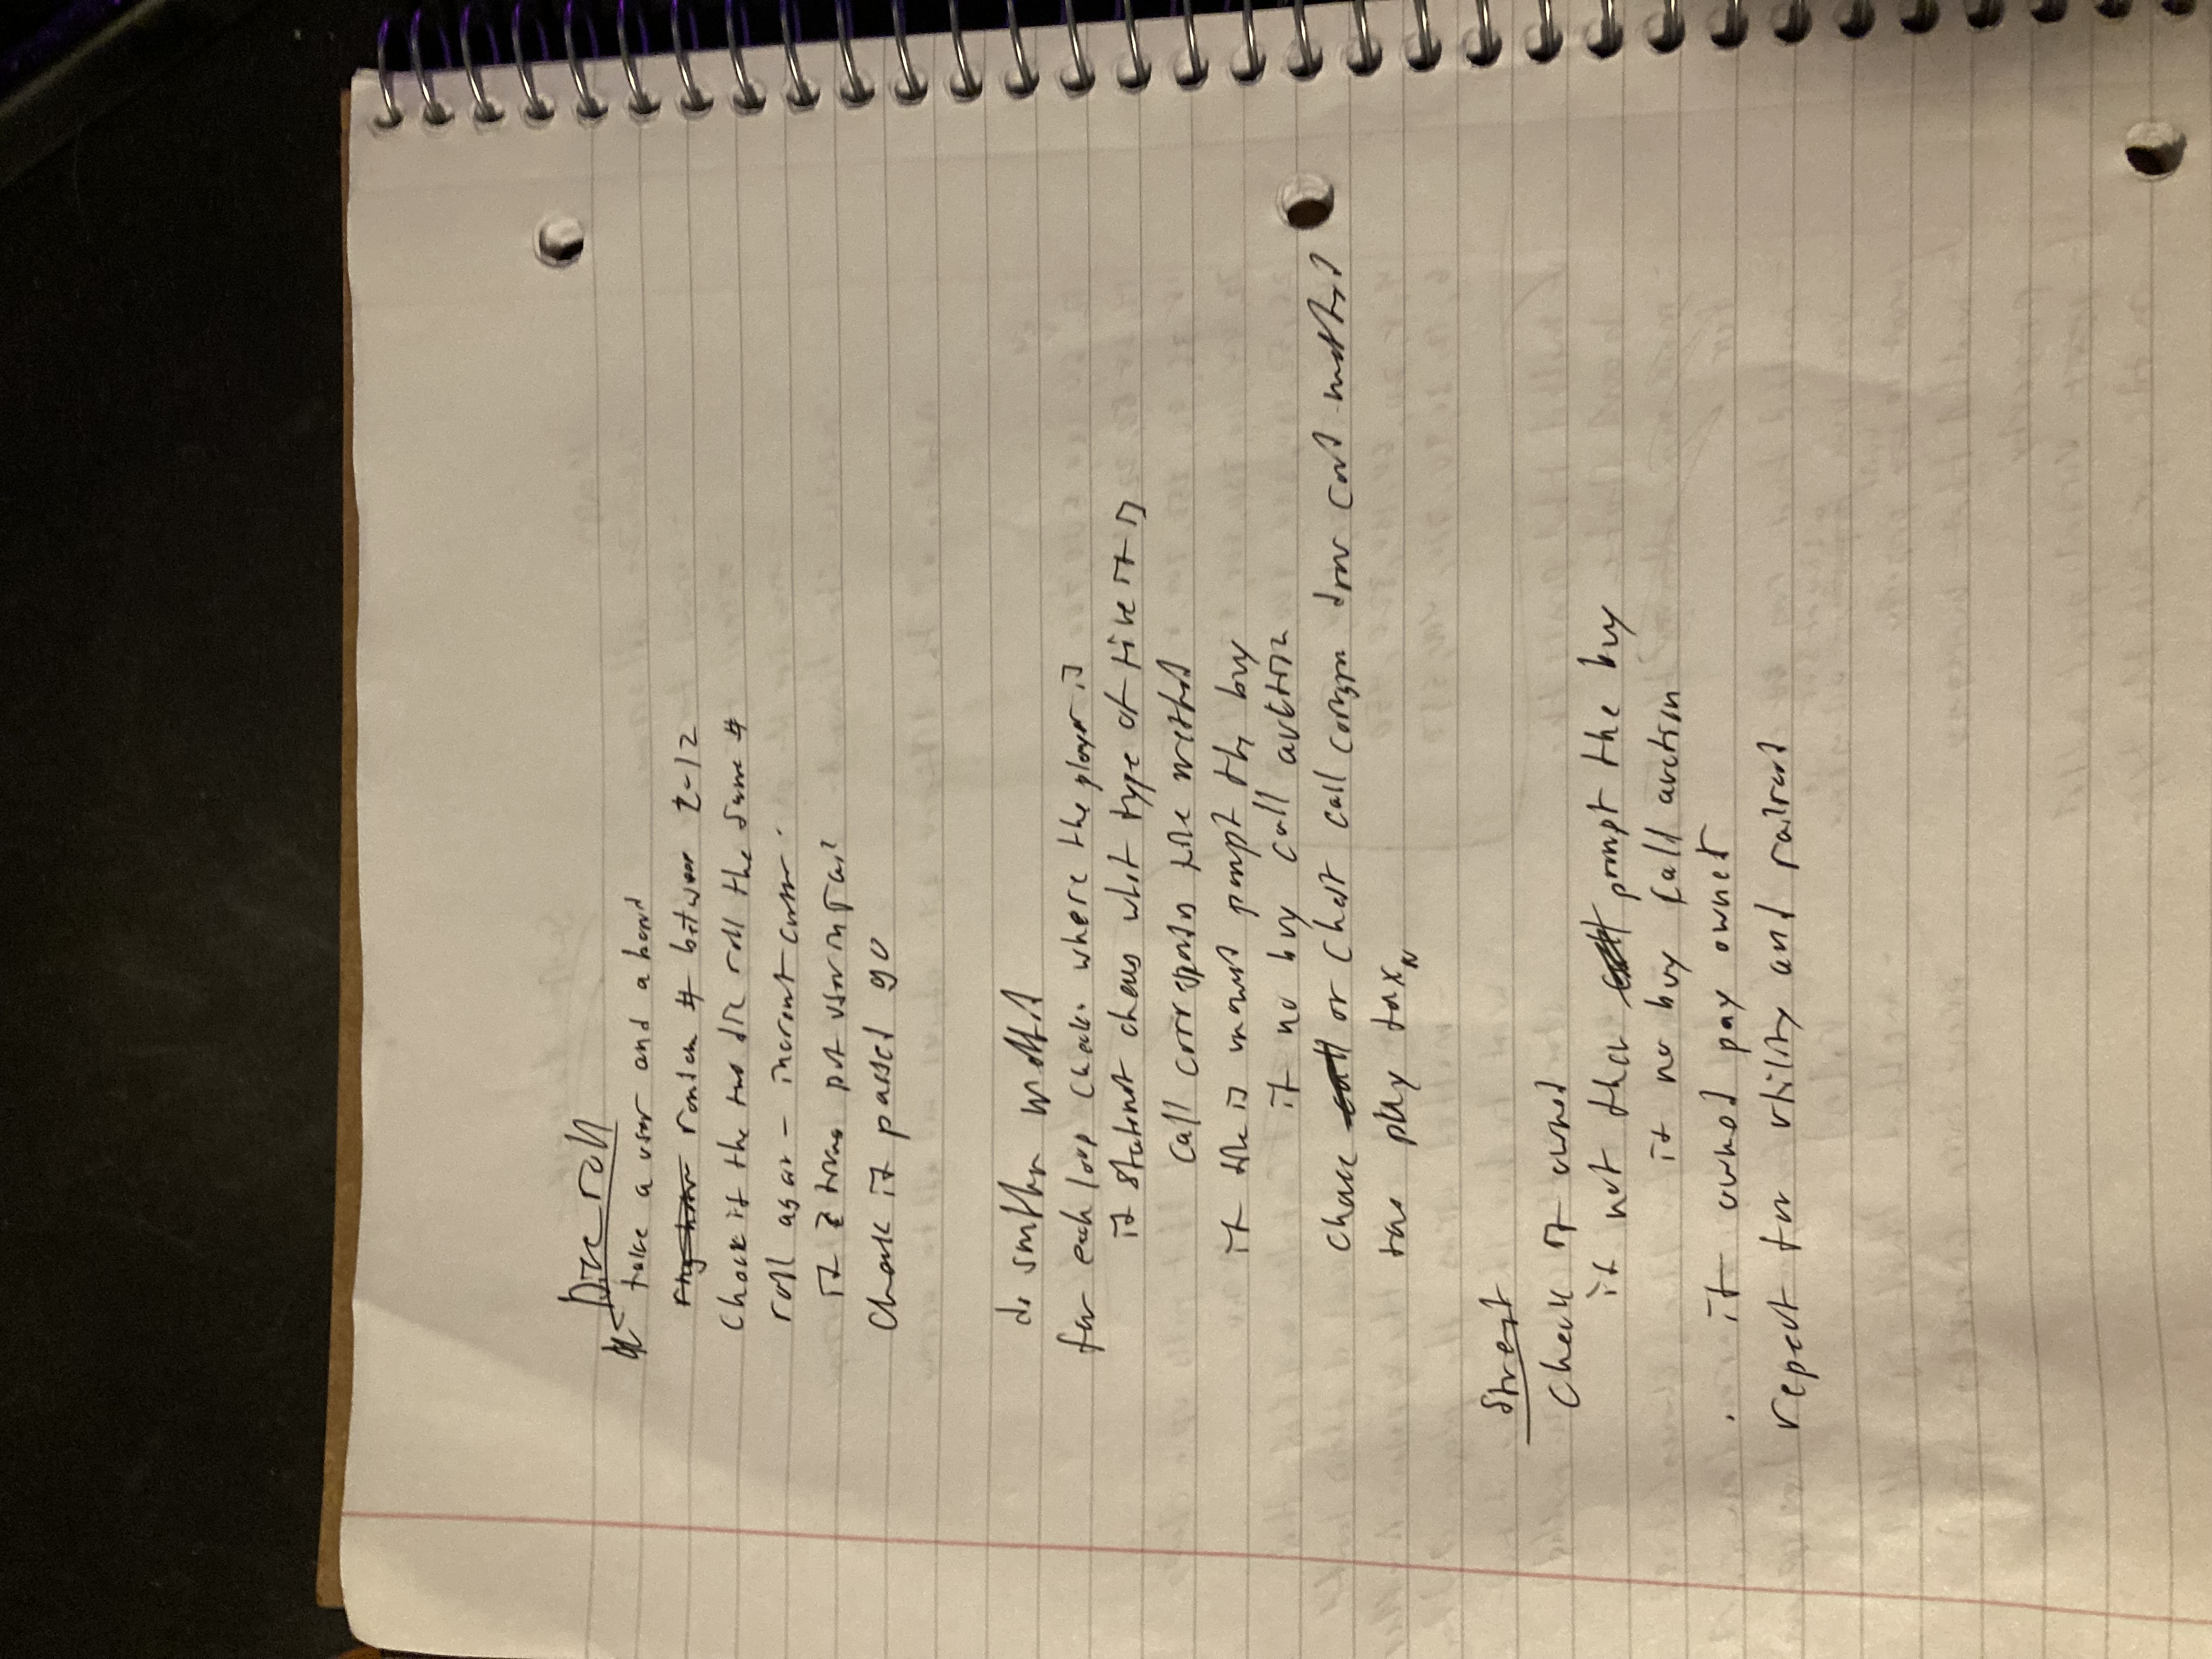 Dice roll
take a user and a board
random # between 2-12
Check if the two die roll the same #
roll again -
if times put user in jail
Check if passed go
do smthn method
for each loop checks where the player is
if statement checks what type of tile it is
call tile method
if tile is unowned prompt the buy
if no buy call auction
chance or chest call draw card method
tax pay tax
Street
Check if owned
if not then prompt the buy
if no buy call auction
if owned pay owner
repeat for utility and railroad